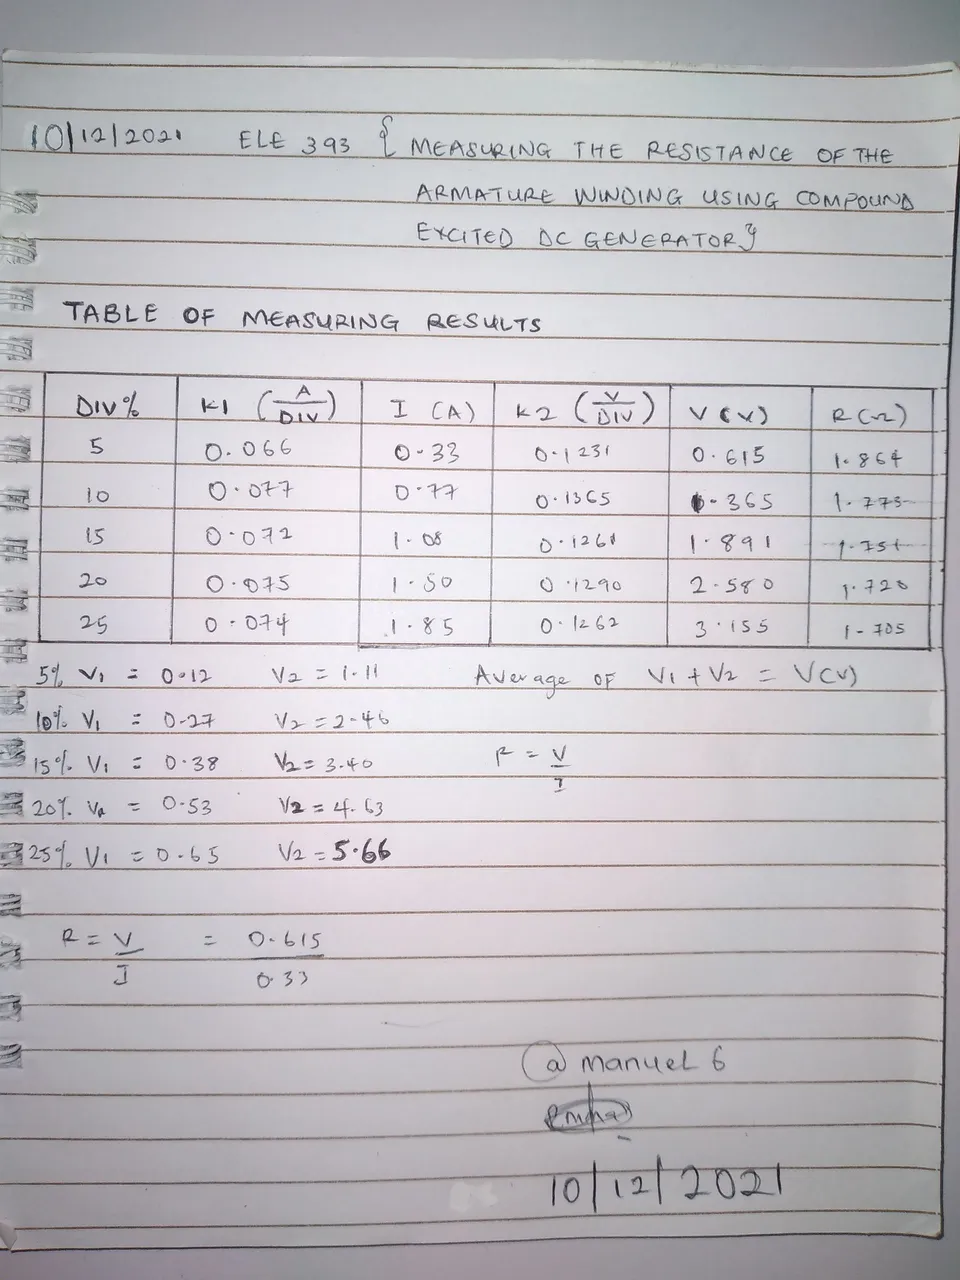 10/12/2021 ELE 393 { MEASURING THE RESISTANCE OF THE
ARMATURE WINDING USING COMPOUND
EXCITED DC GENERATOR}
TABLE OF MEASURING RESULTS
DIV% K1 (A/DIV) I (A) K2 (V/DIV) V (V) R (Ω)
5 0.066 0.33 0.1231 0.615 1.864
10 0.077 0.77 0.1365 1.365 1.773
15 0.072 1.08 0.1261 1.891 1.751
20 0.075 1.50 0.1290 2.580 1.720
25 0.074 1.85 0.1262 3.155 1.705
5% V1 = 0.12 V2 = 1.11 Average OF V1 + V2 = V(V)
10% V1 = 0.27 V2 = 2.46
15% V1 = 0.38 V2 = 3.40 R = V/I
20% V1 = 0.53 V2 = 4.63
25% V1 = 0.65 V2 = 5.66
R = V/I = 0.615/0.33
@ manuel 6
10/12/2021